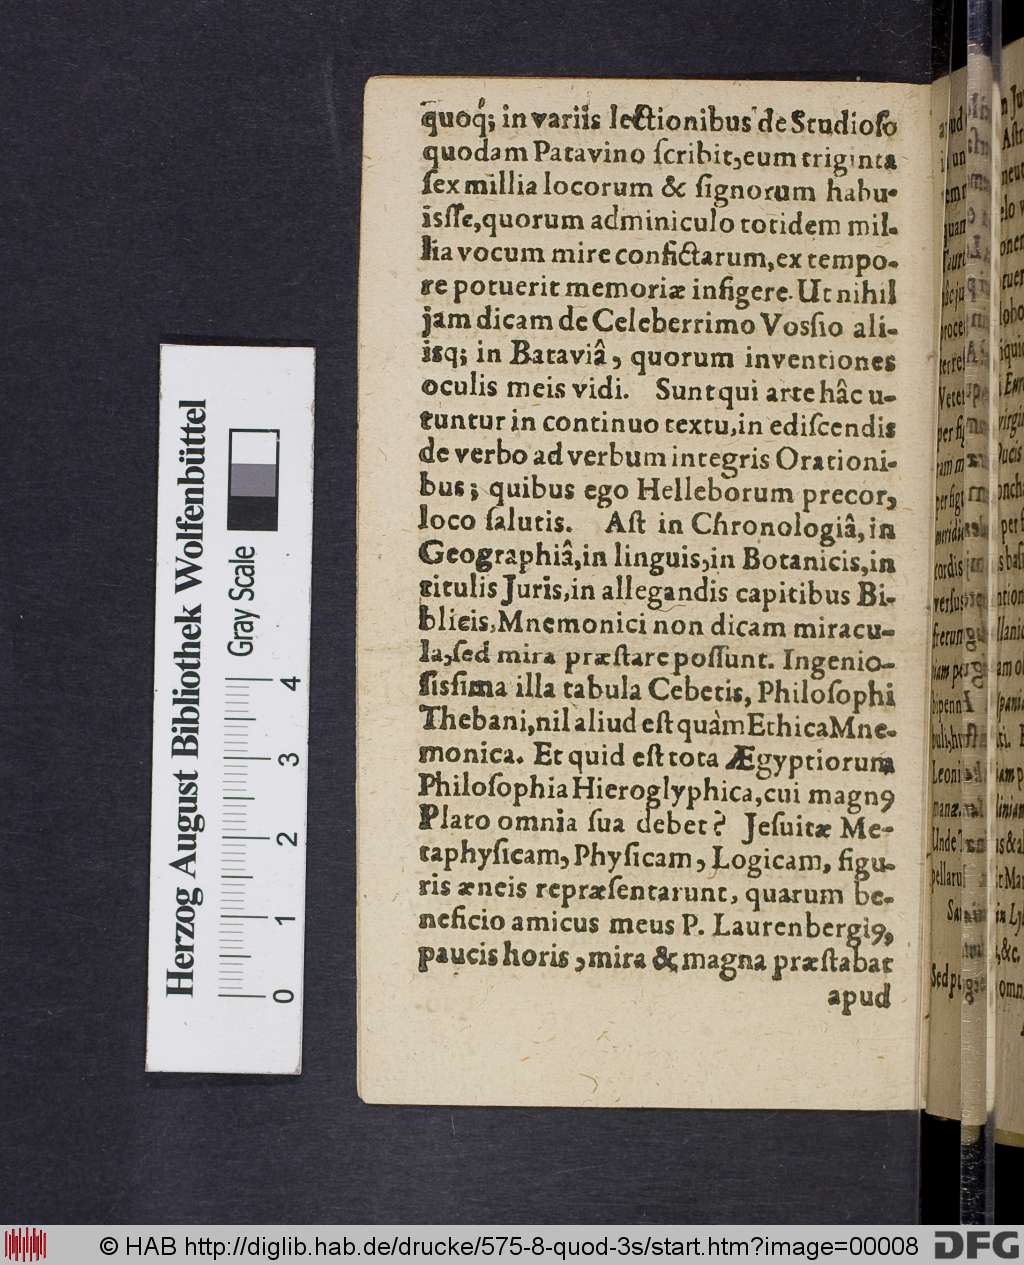 quoq́; in variis lectionibus de Studioſo
quodam Patavino ſcribit, eum triginta
ſex millia locorum & ſignorum habu-
iſſe, quorum adminiculo totidem mil-
lia vocum mire confictarum, ex tempo-
re potuerit memoriæ infigere. Ut nihil
jam dicam de Celeberrimo Vosſio ali-
isq; in Bataviâ, quorum inventiones
oculis meis vidi. Sunt qui arte hâc u-
tuntur in continuo textu, in ediſcendis
de verbo ad verbum integris Orationi-
bus; quibus ego Helleborum precor,
loco ſalutis. Aſt in Chronologiâ, in
Geographiâ, in linguis, in Botanicis, in
titulis Juris, in allegandis capitibus Bi-
blicis, Mnemonici non dicam miracu-
la, ſed mira præſtare poſſunt. Ingenio-
ſisſima illa tabula Cebetis, Philoſophi
Thebani, nil aliud eſt quàm Ethica Mne-
monica. Et quid eſt tota Ægyptiorum
Philoſophia Hieroglyphica, cui magnꝰ
Plato omnia ſua debet? Jeſuitæ Me-
taphyſicam, Phyſicam, Logicam, figu-
ris æneis repræſentarunt, quarum be-
neficio amicus meus P. Laurenbergiꝰ,
paucis horis, mira & magna præſtabat
apud
Herzog August Bibliothek Wolfenbüttel
Gray Scale
0 1 2 3 4
© HAB http://diglib.hab.de/drucke/575-8-quod-3s/start.htm?image=00008
DFG